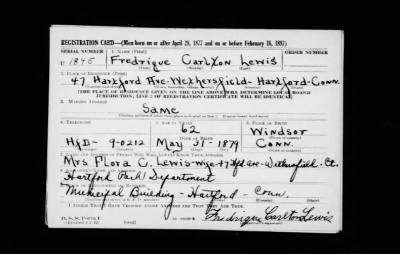 REGISTRATION CARD—(Men born on or after April 28, 1877 and on or before February 16, 1897)
SERIAL NUMBER 1. NAME (Print) ORDER NUMBER
U 1845 Fredrique Carlton Lewis
2. PLACE OF RESIDENCE (Print)
47 Hartford Ave-Wethersfield-Hartford-Conn.
[THE PLACE OF RESIDENCE GIVEN ON THE LINE ABOVE WILL DETERMINE LOCAL BOARD
JURISDICTION; LINE 2 OF REGISTRATION CERTIFICATE WILL BE IDENTICAL]
3. MAILING ADDRESS
Same
4. TELEPHONE 5. AGE IN YEARS 6. PLACE OF BIRTH
62 Windsor
DATE OF BIRTH
HFD- 9-0212 May 31-1879 Conn.
Mrs Flora C. Lewis-wife-47 Hfd ave-Wethersfield, Ct.
Hartford Park Department
Municipal Building-Hartford-Conn.
I AFFIRM THAT I HAVE VERIFIED ABOVE ANSWERS AND THAT THEY ARE TRUE.
D. S. S. Form 1
Fredrique Carlton Lewis